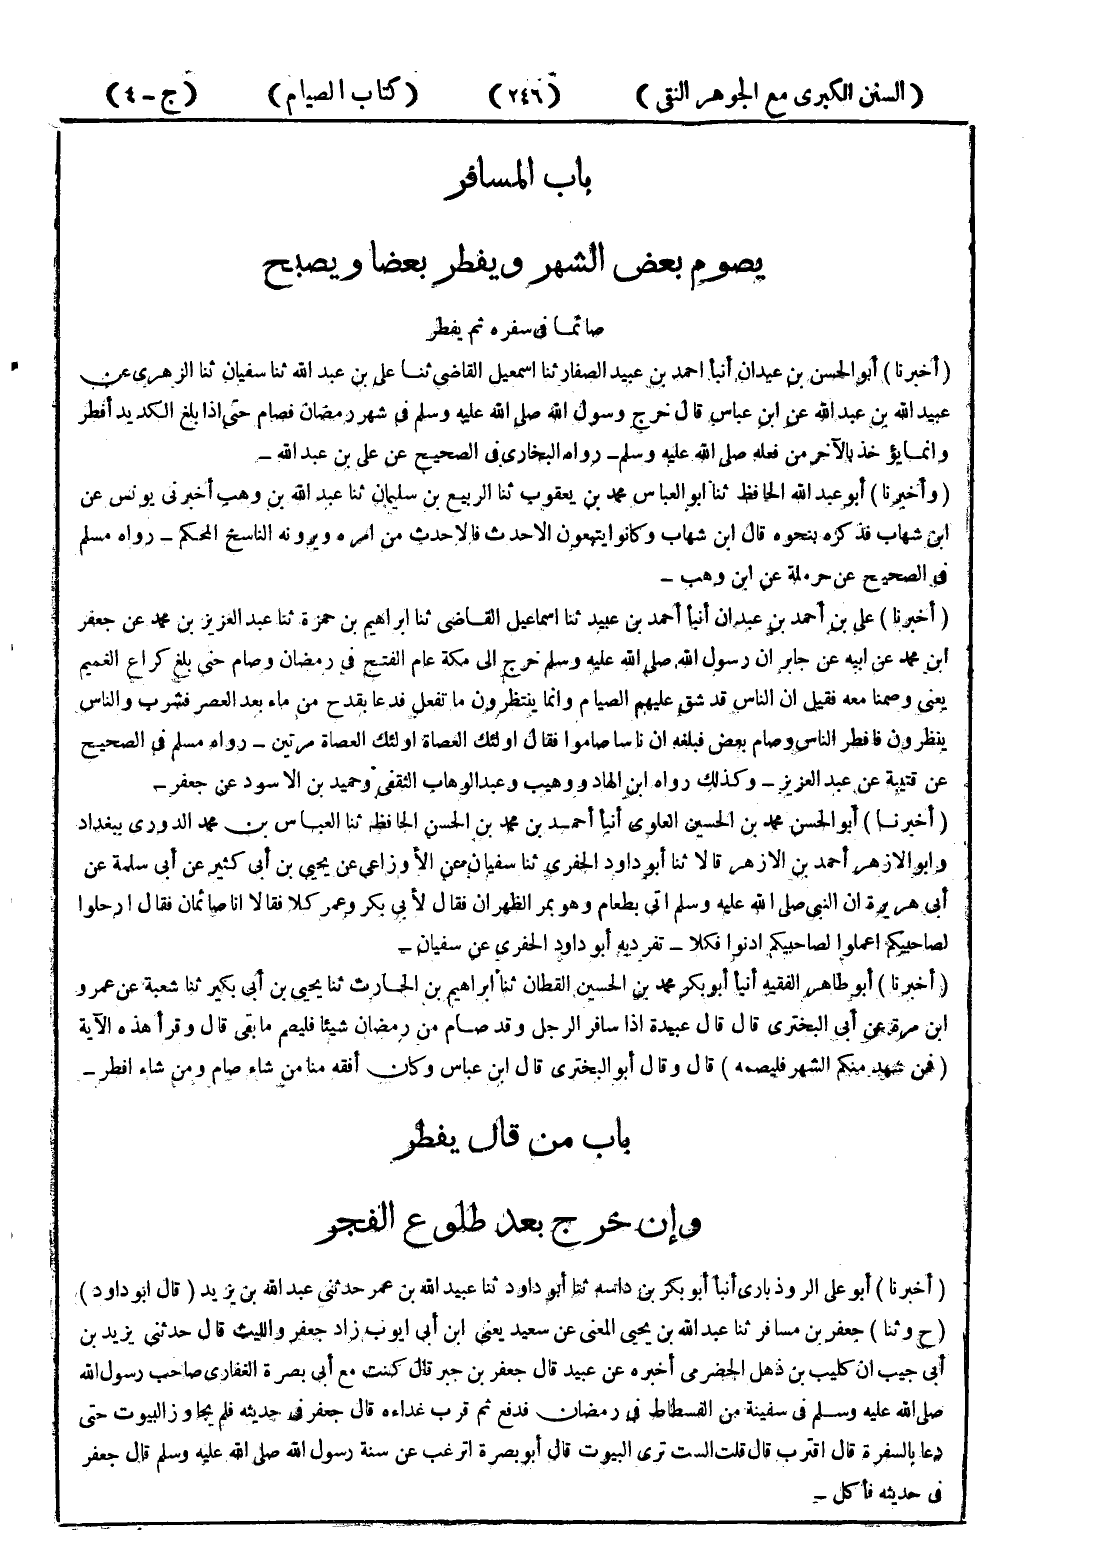 (السنن الكبرى مع الجوهر النقى) (٢٤٦) (كتاب الصيام) (ج - ٤)
باب المسافر
يصوم بعض الشهر ويفطر بعضا ويصبح
صائما فى سفره ثم يفطر
(أخبرنا) أبوالحسن بن عبدان أنبأ احمد بن عبيد الصفار ثنا اسمعيل القاضى ثنا على بن عبد الله ثنا سفيان ثنا الزهرى عن
عبيد الله بن عبد الله عن ابن عباس قال خرج رسول الله صلى الله عليه وسلم فى شهر رمضان فصام حتى اذا بلغ الكديد أفطر
وانما يؤخذ بالآخر من فعله صلى الله عليه وسلم - رواه البخارى فى الصحيح عن على بن عبد الله -
(وأخبرنا) أبو عبد الله الحافظ ثنا ابو العباس محمد بن يعقوب ثنا الربيع بن سليمان ثنا عبد الله بن وهب أخبرنى يونس عن
ابن شهاب فذكره بنحوه قال ابن شهاب وكانوا يتبعون الاحدث فالاحدث من امره ويرونه الناسخ المحكم - رواه مسلم
فى الصحيح عن حرملة عن ابن وهب -
(أخبرنا) على بن أحمد بن عبدان أنبأ أحمد بن عبيد ثنا اسماعيل القاضى ثنا ابراهيم بن حمزة ثنا عبد العزيز بن محمد عن جعفر
ابن محمد عن ابيه عن جابر ان رسول الله صلى الله عليه وسلم خرج الى مكة عام الفتح فى رمضان وصام حتى بلغ كراع الغميم
يعنى وصمنا معه فقيل ان الناس قد شق عليهم الصيام وانما ينتظرون ما تفعل فدعا بقدح من ماء بعد العصر فشرب والناس
ينظرون فافطر الناس وصام بعض فبلغه ان ناسا صاموا فقال اولئك العصاة اولئك العصاة مرتين - رواه مسلم فى الصحيح
عن قتيبة عن عبد العزيز - وكذلك رواه ابن الهاد ووهيب وعبدالوهاب الثقفى وحميد بن الاسود عن جعفر -
(أخبرنا) أبوالحسن محمد بن الحسين العلوى أنبأ أحمد بن محمد بن الحسن الحافظ ثنا العباس بن محمد الدورى ببغداد
وابو الازهر أحمد بن الازهر قالا ثنا أبو داود الحفرى ثنا سفيان عن الأوزاعى عن يحيى بن أبى كثير عن أبى سلمة عن
أبى هريرة ان النبى صلى الله عليه وسلم اتى بطعام وهو بمر الظهران فقال لأبى بكر وعمر كلا فقالا انا صائمان فقال ارحلوا
لصاحبيكم اعملوا لصاحبيكم ادنوا فكلا - تفرد به أبو داود الحفرى عن سفيان -
(أخبرنا) أبو طاهر الفقيه أنبأ أبوبكر محمد بن الحسين القطان ثنا ابراهيم بن الحارث ثنا يحيى بن أبى بكير ثنا شعبة عن عمرو
ابن مرة عن أبى البخترى قال قال عبيدة اذا سافر الرجل وقد صام من رمضان شيئا فليصم ما بقى قال وقرأ هذه الآية
(فمن شهد منكم الشهر فليصمه) قال وقال أبو البخترى قال ابن عباس وكان أفقه منا من شاء صام ومن شاء افطر -
باب من قال يفطر
وإن خرج بعد طلوع الفجر
(أخبرنا) أبو على الروذبارى أنبأ أبو بكر بن داسه ثنا أبو داود ثنا عبيد الله بن عمر حدثنى عبد الله بن يزيد (قال ابو داود)
(ح وثنا) جعفر بن مسافر ثنا عبد الله بن يحيى المعنى عن سعيد يعنى ابن أبى ايوب زاد جعفر والليث قال حدثنى يزيد بن
أبى حبيب ان كليب بن ذهل الحضرمى أخبره عن عبيد قال جعفر بن جبر قال كنت مع أبى بصرة الغفارى صاحب رسول الله
صلى الله عليه وسلم فى سفينة من الفسطاط فى رمضان فدفع ثم قرب غداءه قال جعفر فى حديثه فلم يجاوز البيوت حتى
دعا بالسفرة قال اقترب قال قلت الست ترى البيوت قال أبو بصرة اترغب عن سنة رسول الله صلى الله عليه وسلم قال جعفر
فى حديثه فأكل -